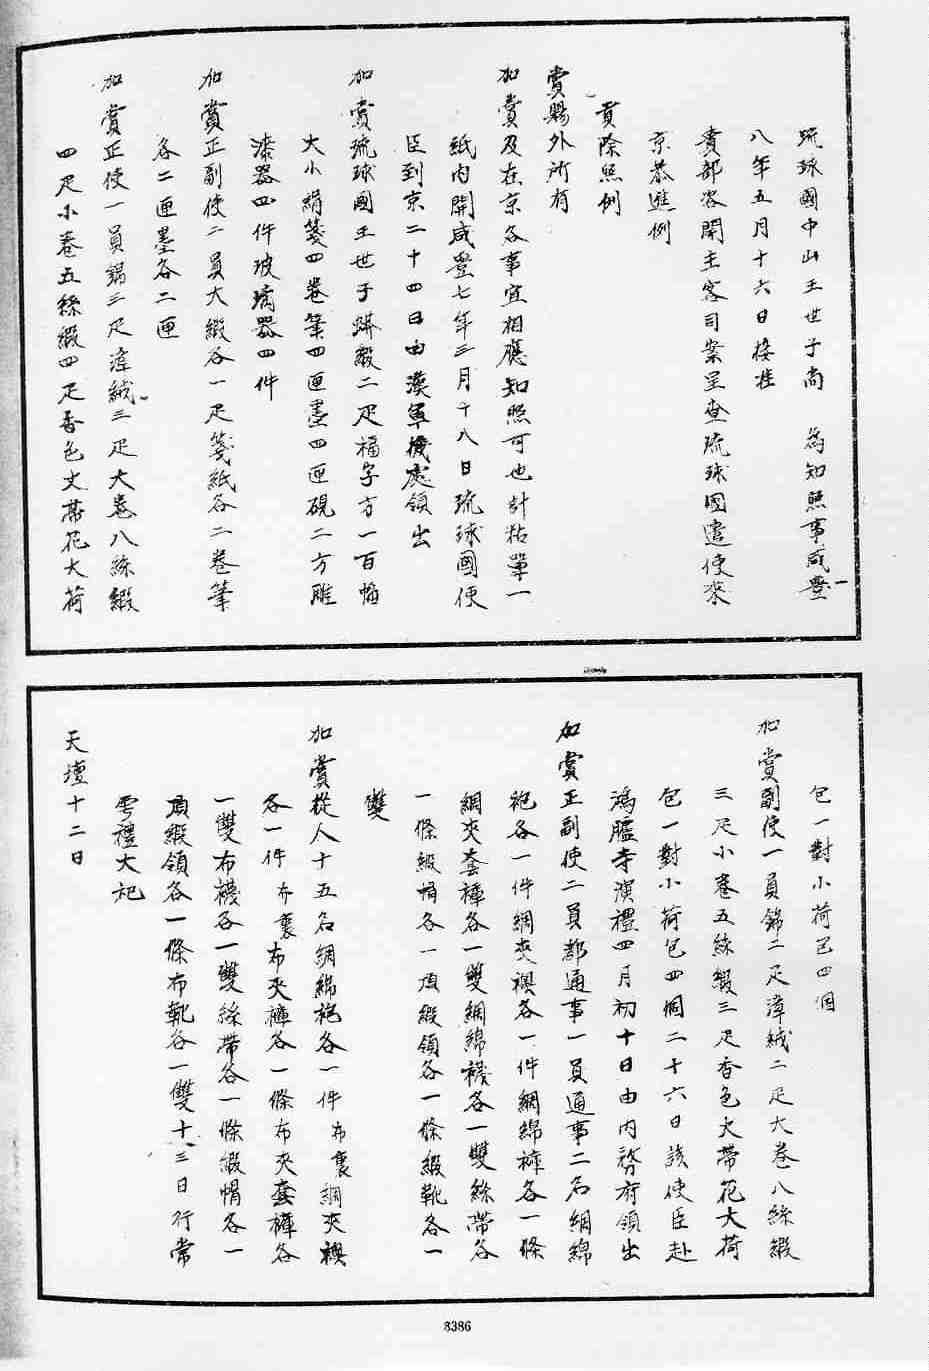 琉球國中山王世子尚　為知照事咸豐
八年五月十六日接准
貴部咨開主客司案呈查琉球國遣使來
京恭進例
貢除照例
賞賜外所有
加賞及在京各事宜相應知照可也計粘單一
紙內開咸豐七年三月十八日琉球國使
臣到京二十四日由漢軍機處領出
加賞琉球國王世子蟒緞二疋福字方一百幅
大小絹箋四卷筆四匣墨四匣硯二方雕
漆器四件玻璃器四件
加賞正副使二員大緞各一疋箋紙各二卷筆
各二匣墨各二匣
加賞正使一員錦三疋漳絨三疋大卷八絲緞
四疋小卷五絲緞四疋香色丈帶花大荷
包一對小荷包四個
加賞副使一員錦二疋漳絨二疋大卷八絲緞
三疋小卷五絲緞三疋香色丈帶花大荷
包一對小荷包四個二十六日該使臣赴
鴻臚寺演禮四月初十日由內務府領出
加賞正副使二員都通事一員通事二名綢綿
袍各一件綢夾襖各一件綢綿褲各一條
綢夾套褲各一雙綢綿襪各一雙絲帶各
一條緞帽各一頂緞領各一條緞靴各一
雙
加賞從人十五名綢綿袍各一件布裏綢夾襖
各一件布裏布夾褲各一條布夾套褲各
一雙布襪各一雙絲帶各一條緞帽各一
頂緞領各一條布靴各一雙十三日行常
雩禮大祀
天壇十二日
8386